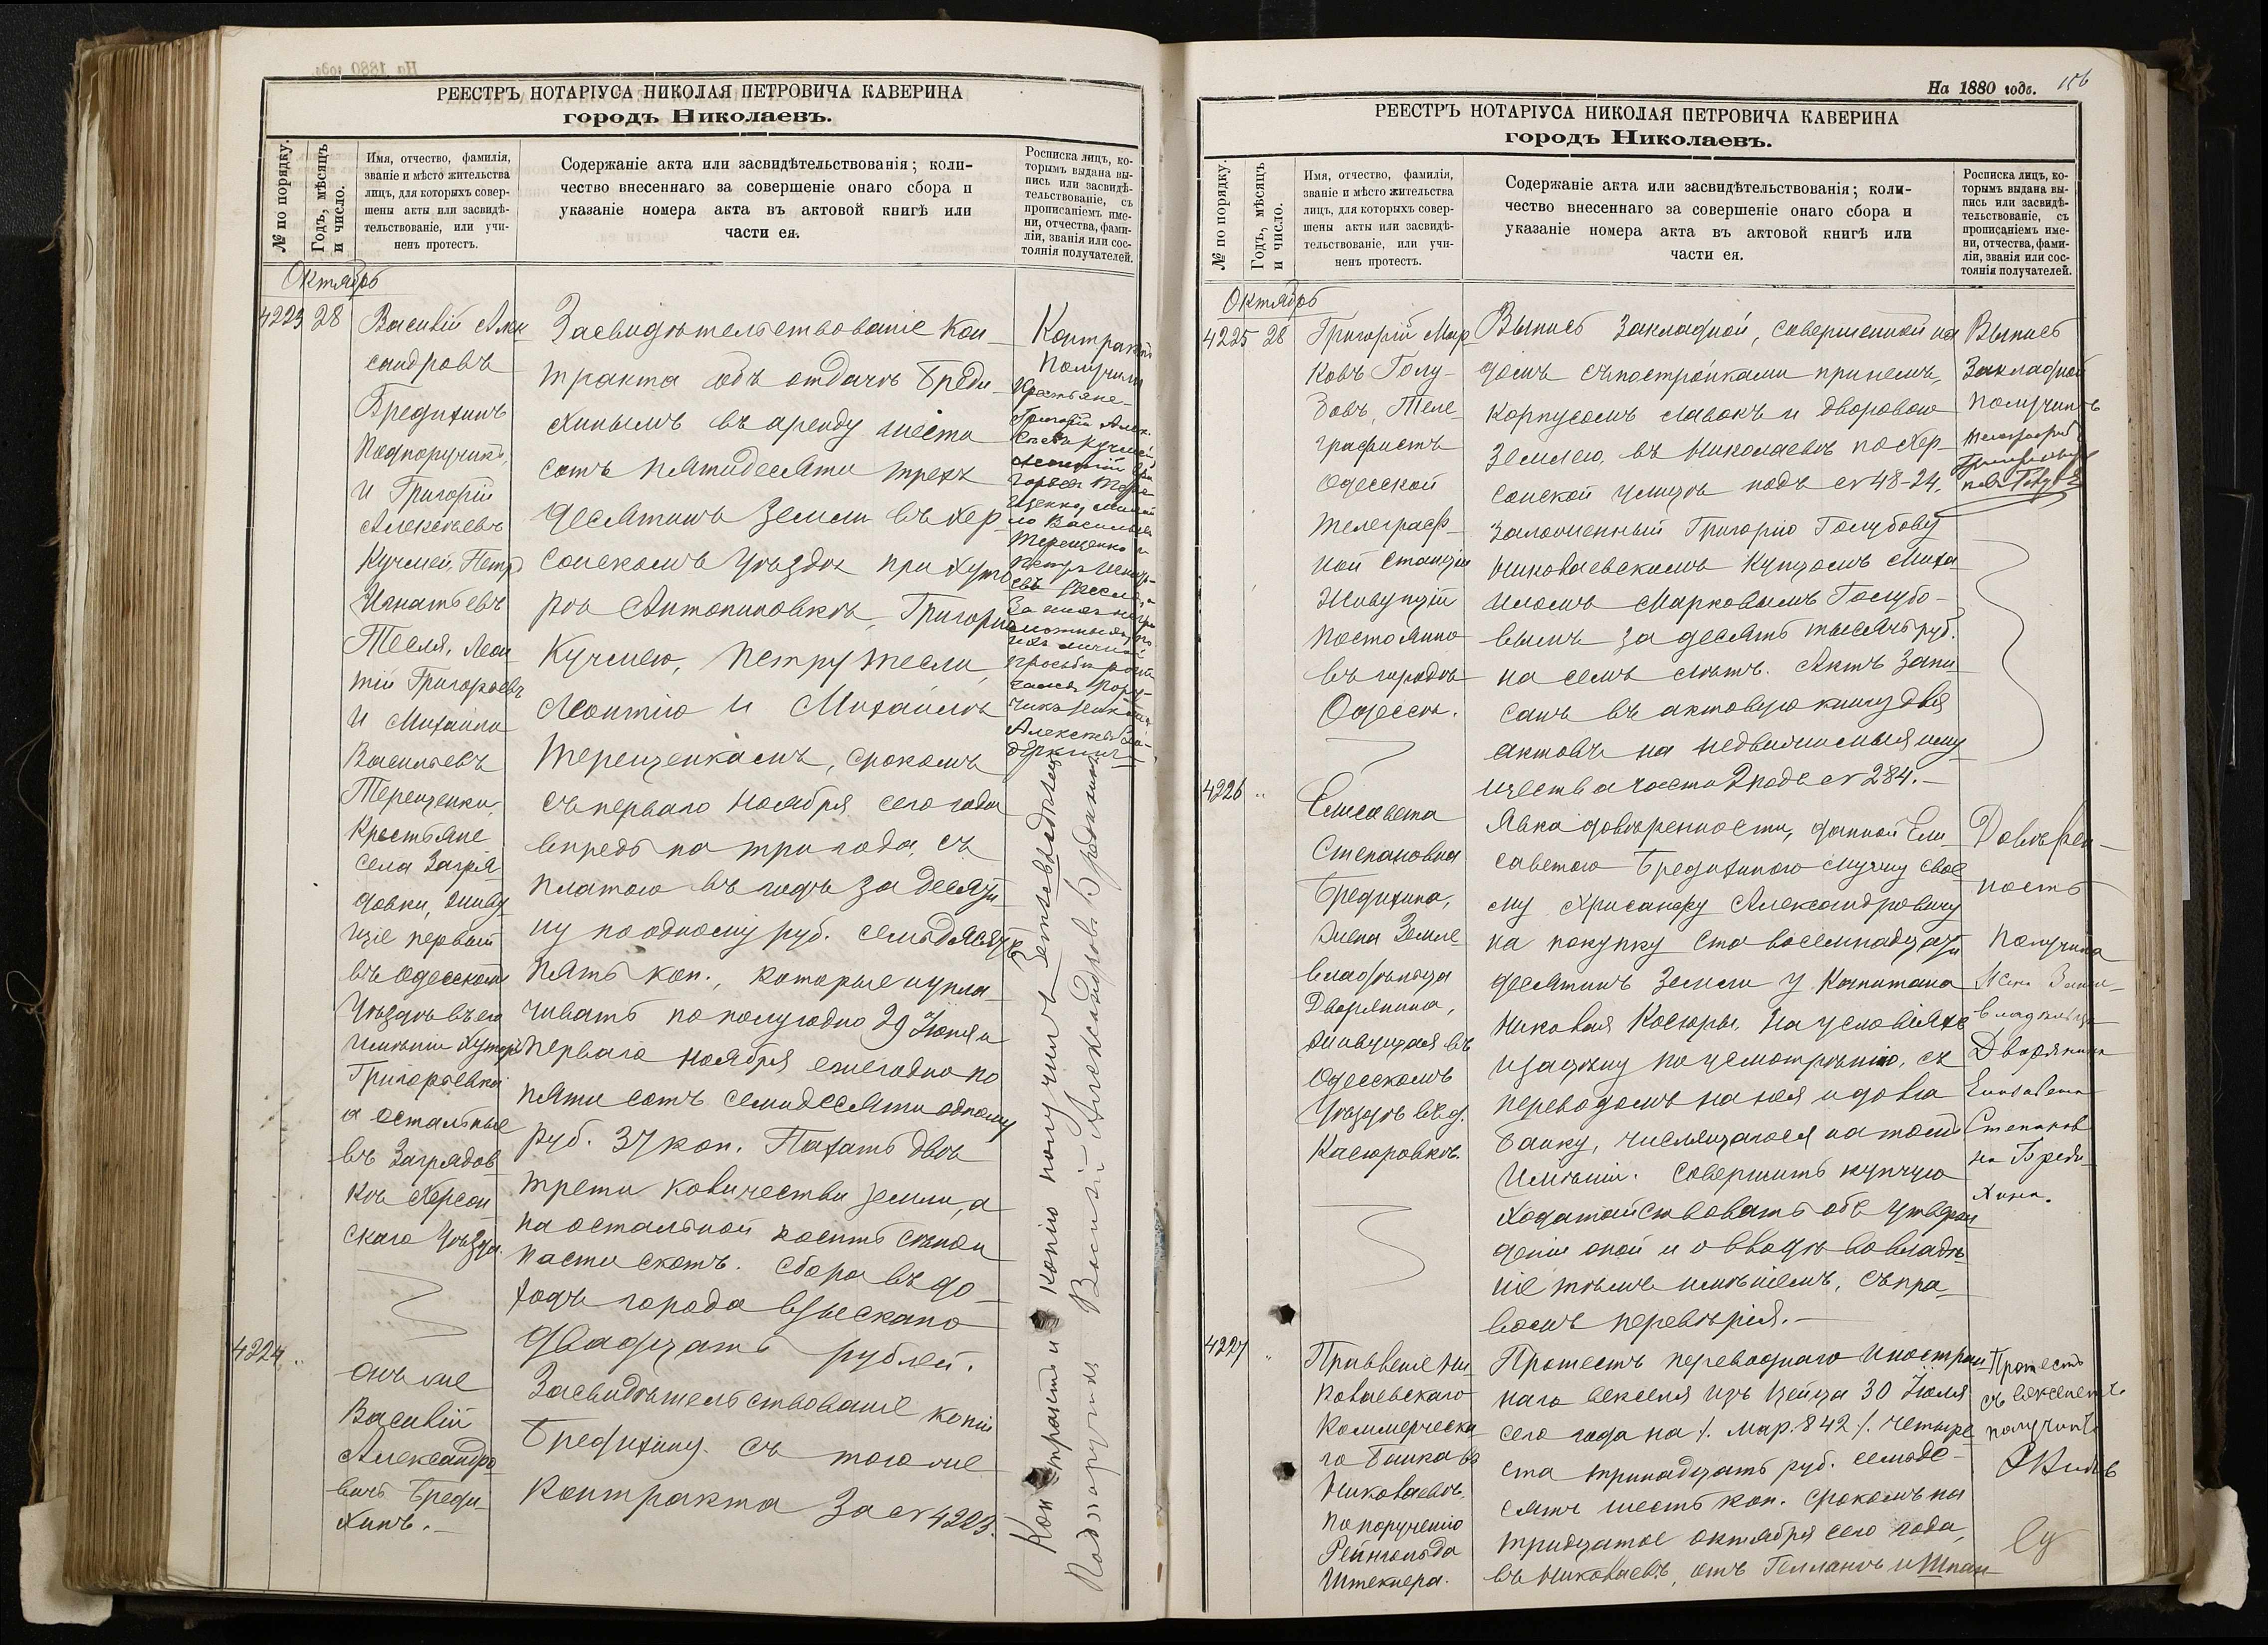 РЕЕСТРЪ НОТАРІУСА НИКОЛАЯ ПЕТРОВИЧА КАВЕРИНА
городъ Николаевъ.
№ по порядку.
Годъ, мѣсяцъ
и число.
Имя, отчество, фамилія,
званіе и мѣсто жительства
лицъ, для которыхъ совер-
шены акты или засвидѣ-
тельствованіе, или учи-
ненъ протестъ.
Содержаніе акта или засвидѣтельствованія; коли-
чество внесеннаго за совершеніе онаго сбора и
указаніе номера акта въ актовой книгѣ или
части ея.
Росписка лицъ, ко-
торымъ выдана вы-
пись или засвидѣ-
тельствованіе, съ
прописаніемъ име-
ни, отчества, фами-
ліи, званія или сос-
тоянія получателей.
Октябрь
4223
28
Василій Алек
сандровъ
Бредихинъ
Подпоручикъ,
и Григорій
Алексѣевъ
Кучмей, Петръ
Игнатьевъ
Тесля, Леон
тій Григорьевъ
и Михаилъ
Васильевъ
Терещенки,
Крестьяне
села Загря
довки, живу
щіе первый
въ Одесскомъ
Уѣздѣ въ его
имѣніи Хуторѣ
Григорьевкѣ
а остальные
въ Загрядов
кѣ Херсон
скаго Уѣзда.
Засвидѣтельствованіе Кон
тракта объ отдачѣ Бреди
хинымъ въ аренду шести
сотъ пятидесяти трехъ
десятинъ земли въ Хер
сонскомъ Уѣздѣ при Хуто
рѣ Антониновкѣ, Григорію
Кучмею, Петру Тесли,
Леонтію и Михаилѣ
Терещенкамъ, срокомъ
съ перваго Ноября сего года
впредь на три года, съ
платою въ годъ за десяти
ну по одному руб. семьдесятъ
пять коп., которые упла
чивать по полугодно 29 Іюня и
перваго Ноября ежегодно по
пяти сотъ семидесяти одному
руб. 37 коп. Пахать двѣ
трети количества земли, а
на остальной косить сѣно и
пасти скотъ. Сбора въ до
ходъ города взыскано
двадцать рублей.
Контрактъ
получили
Крестьяне
Григорій Алек
Терещенко и
Контрактъ и копію получилъ Землевладѣлецъ
Подпоручикъ Василій Александровъ Бредихинъ
4224
"
онъ же
Василій
Александро
вичъ Бреди
хинъ.
Засвидѣтельствованіе копіи
Бредихину съ того же
Контракта за № 4223.
На 1880 годъ.
156
РЕЕСТРЪ НОТАРІУСА НИКОЛАЯ ПЕТРОВИЧА КАВЕРИНА
городъ Николаевъ.
№ по порядку.
Годъ, мѣсяцъ
и число.
Имя, отчество, фамилія,
званіе и мѣсто жительства
лицъ, для которыхъ совер-
шены акты или засвидѣ-
тельствованіе, или учи-
ненъ протестъ.
Содержаніе акта или засвидѣтельствованія; коли-
чество внесеннаго за совершеніе онаго сбора и
указаніе номера акта въ актовой книгѣ или
части ея.
Росписка лицъ, ко-
торымъ выдана вы-
пись или засвидѣ-
тельствованіе, съ
прописаніемъ име-
ни, отчества, фами-
ліи, званія или сос-
тоянія получателей.
Октябрь
4225
28
Григорій Мар
ковъ Голу
бовъ, Теле
графистъ
Одесской
телеграф
ной станціи
живущій
постоянно
въ городѣ
Одессѣ.
Выпись закладной, совершенной на
домъ съ постройками при немъ,
корпусомъ лавокъ и дворовою
землею, въ Николаевѣ по Хер
сонской улицѣ подъ № 48-24,
заложенный Григорію Голубову
Николаевскимъ Купцомъ Миха
иломъ Марковымъ Голубо
вымъ за десять тысячъ руб.
на семь лѣтъ. Актъ запи
санъ въ актовую книгу для
актовъ на недвижимыя иму
щества часть 2 подъ № 284.
Выпись
Закладной
получилъ
Телеграфистъ
4226
"
Елисавета
Степановна
Бредихина,
жена Земле
владѣльца
Дворянина,
живущая въ
Одесскомъ
Уѣздѣ въ д.
Касюровкѣ.
Явка довѣренности, данной Ели
саветою Бредихиною мужу свое
му Хрисанфу Александровичу
на покупку ста восемнадцати
десятинъ земли у Капитана
Николая Косюры, на условіяхъ
и за цѣну по усмотрѣнію, съ
переводомъ на нея и долга
банку, числящагося на томъ
имѣніи. Совершить купчую
Ходатайствовать объ утверж
деніи оной и о вводѣ во владѣ
ніе тѣмъ имѣніемъ, съ пра
вомъ перевѣрія.
Довѣрен-
ность
получила
Жена Земле-
владѣльца
Дворянина
Елизавета
Степанов
на Бреди
хина.
4227
"
Правленіе Ни
колаевскаго
Коммерческа
го Банка въ
Николаевѣ,
по порученію
Рейнгольда
Штеккера.
Протестъ переводнаго иностран
наго векселя изъ Цейца 30 Іюля
сего года на /. Мар. 842 /. четыре
ста тринадцать руб. семьде
сятъ шесть коп. срокомъ на
тридцатое октября сего года,
въ Николаевѣ, отъ Гелланъ и Шпан
Протестъ
съ векселемъ
получилъ